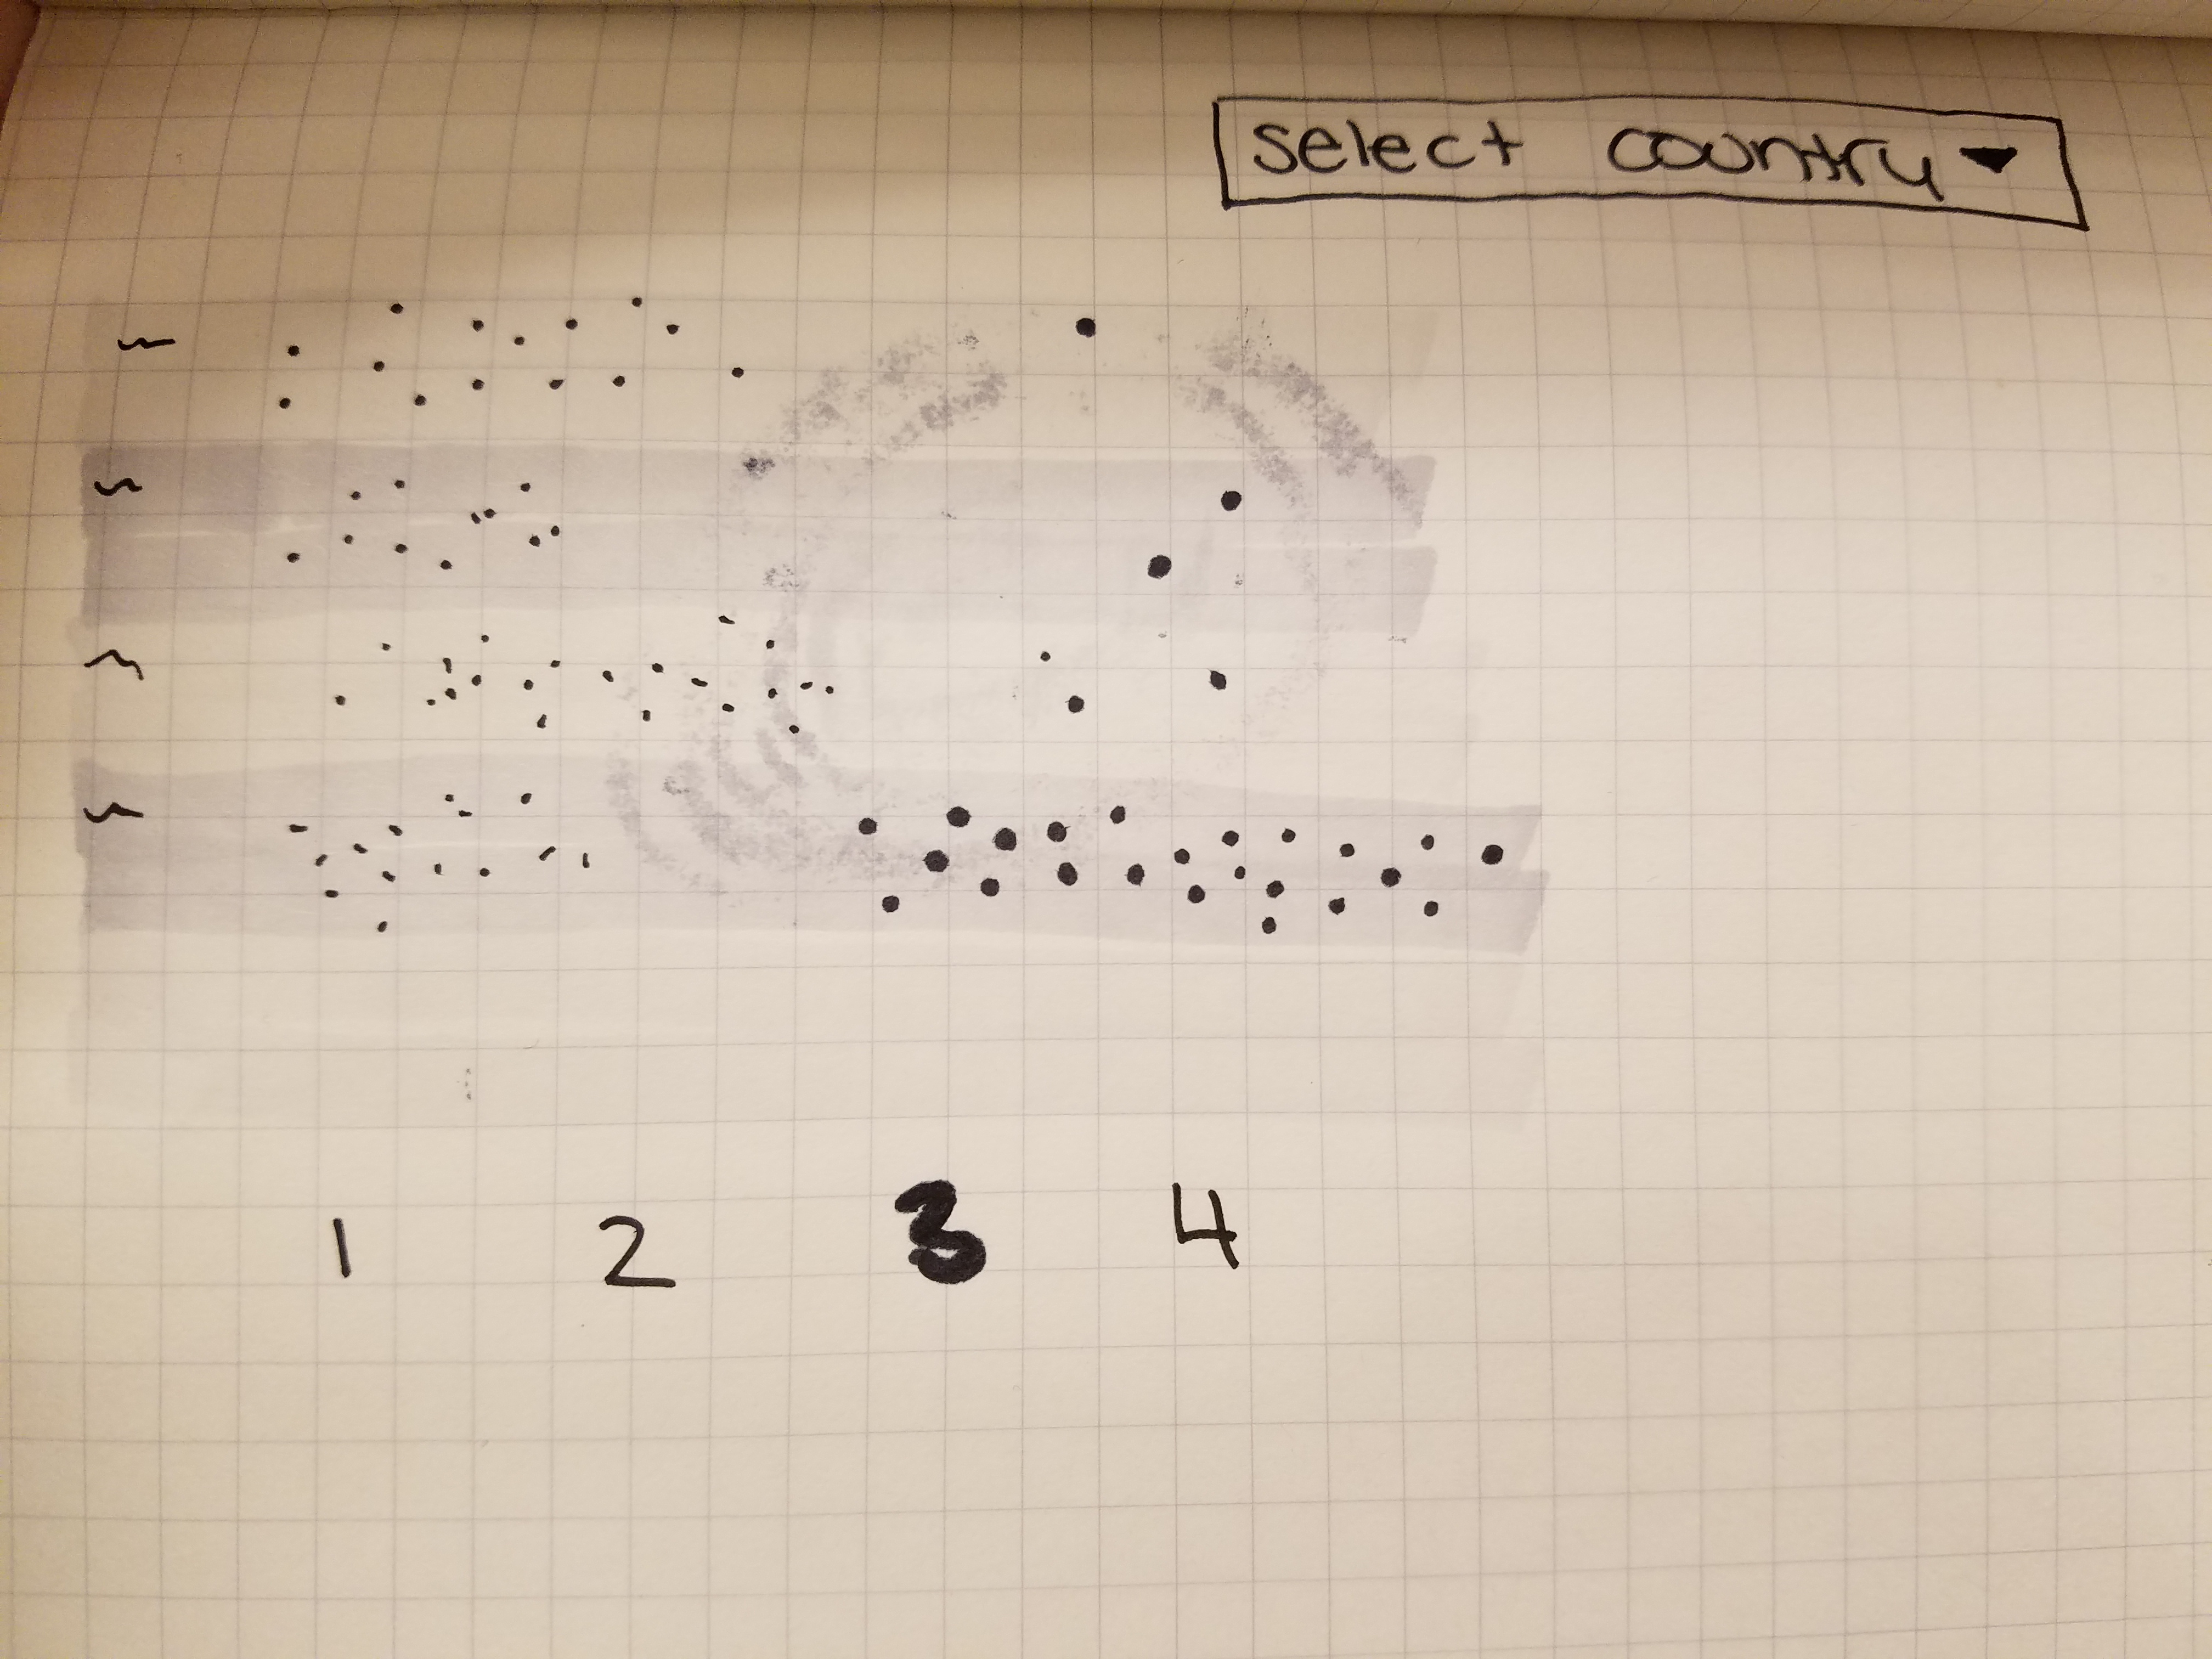 select country
1 2 3 4